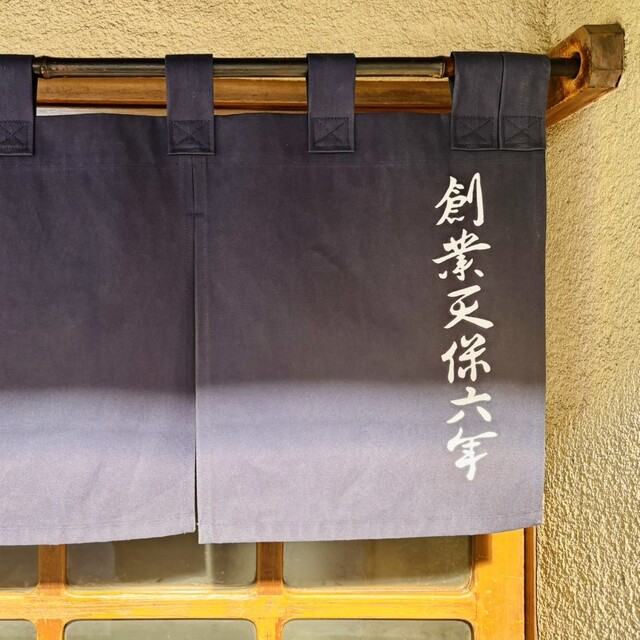 創業天保六年